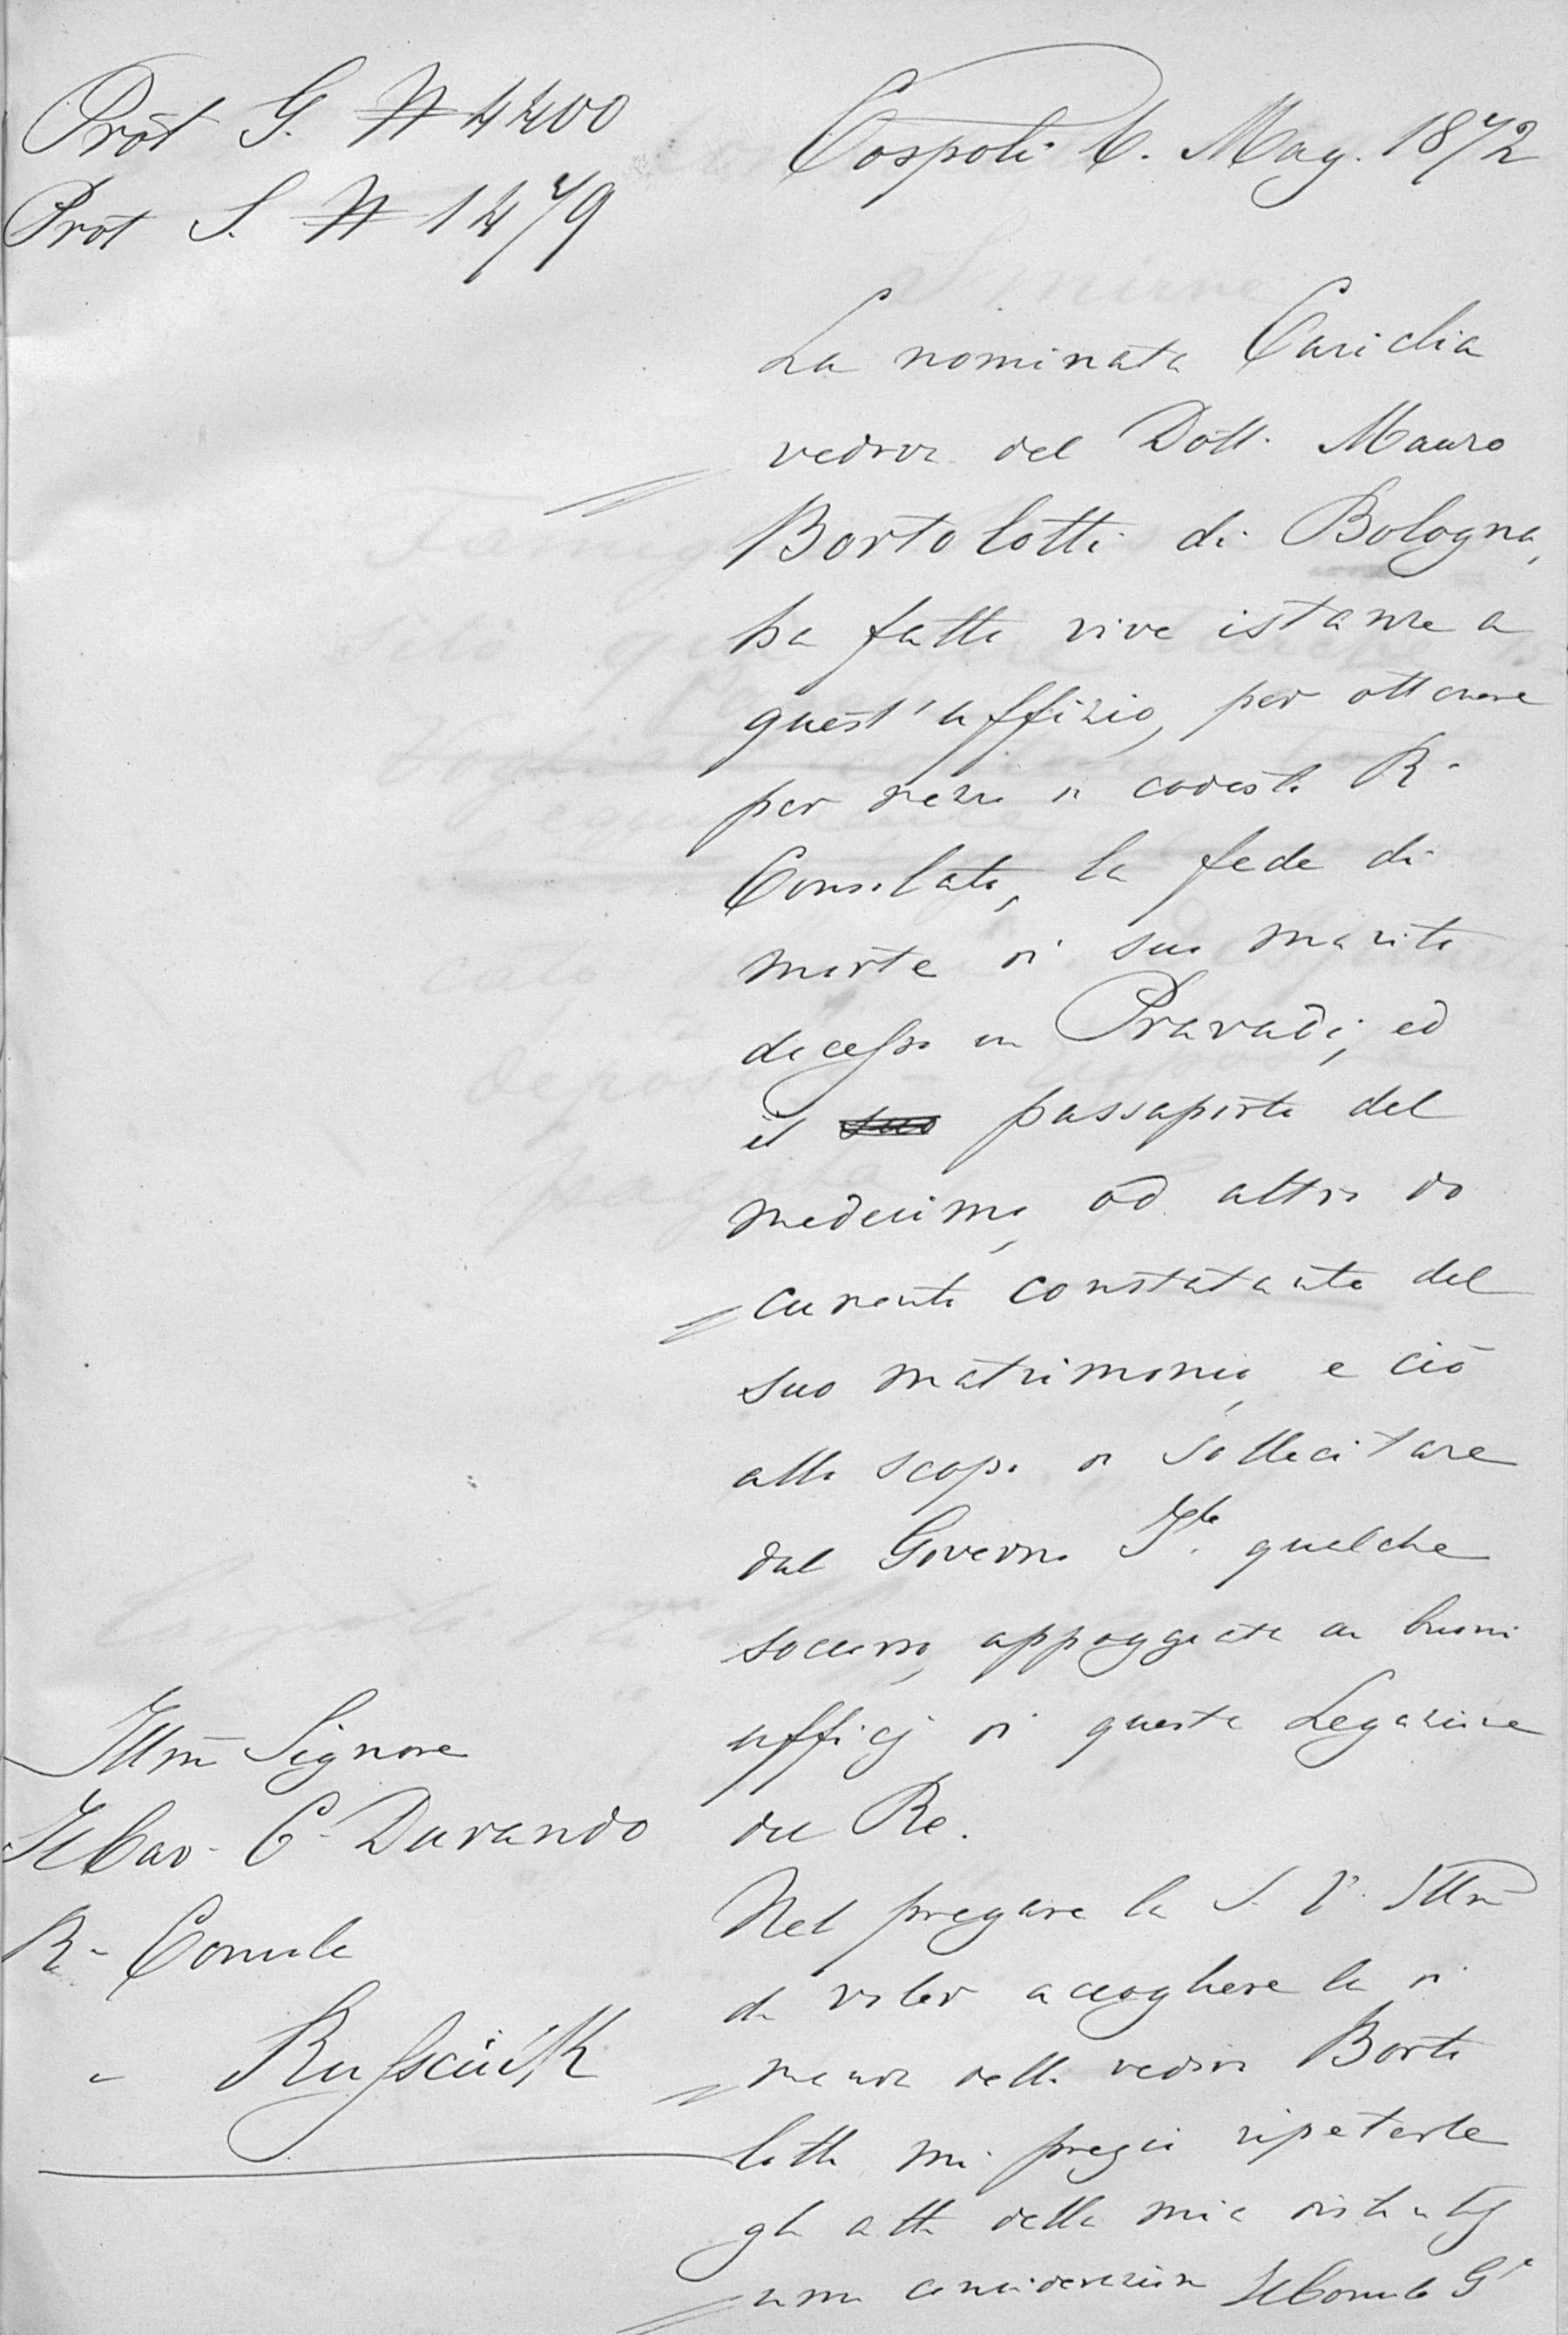 Prot G. N 4400
Prot S. N 1479
Cospoli 6. Mag. 1872
La nominata Cariclia
vedova del Dott. Mauro
Bortolotti di Bologna,
ha fatto vive istanze a
quest'uffizio, per ottenere
per mezzo di codesto R.
Consolato, la fede di
morte di suo marito
decesso in Pravadi, ed
il suo passaporto del
medesimo, od altro do
cumento constatante del
suo matrimonio, e ciò
allo scopo di sollecitare
dal Governo It.le qualche
soccorso, appoggiata ai buoni
ufficj di questa Legazione
del Re.
Nel pregare la S. V. Illm
di voler accogliere la di
manda della vedova Borto
lotti mi pregio ripeterle
gli atti della mia distintis
sima considerazione Il Console G.e
Illm Signore
Il Cav. C. Durando
R. Console
" Rusciuk